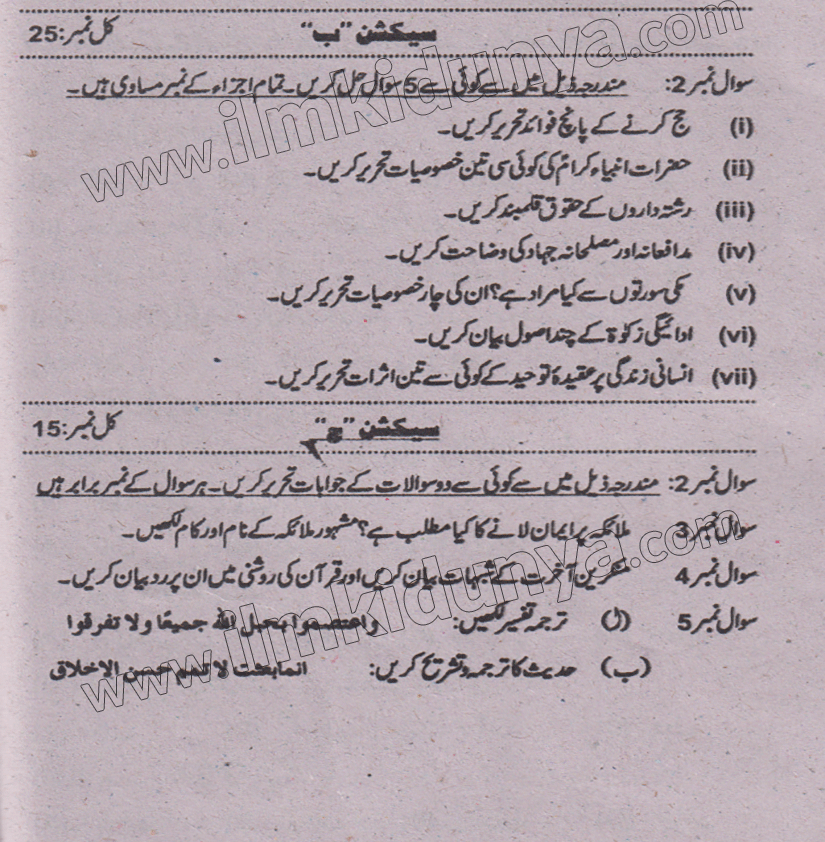 سیکشن "ب" کل نمبر:25
سوال نمبر2: مندرجہ ذیل میں سے کوئی سے 5 سوال حل کریں۔ تمام اجزاء کے نمبر مساوی ہیں۔
(i) حج کرنے کے پانچ فوائد تحریر کریں۔
(ii) حضرات انبیاء کرام کی کوئی سی تین خصوصیات تحریر کریں۔
(iii) رشتہ داروں کے حقوق قلمبند کریں۔
(iv) مدافعانہ اور مصلحانہ جہاد کی وضاحت کریں۔
(v) مکی سورتوں سے کیا مراد ہے؟ ان کی چار خصوصیات تحریر کریں۔
(vi) ادائیگی زکوٰۃ کے چند اصول بیان کریں۔
(vii) انسانی زندگی پر عقیدۂ توحید کے کوئی سے تین اثرات تحریر کریں۔
سیکشن "ج" کل نمبر:15
سوال نمبر2: مندرجہ ذیل میں سے کوئی سے دو سوالات کے جوابات تحریر کریں۔ ہر سوال کے نمبر برابر ہیں
سوال نمبر3 ملائکہ پر ایمان لانے کا کیا مطلب ہے؟ مشہور ملائکہ کے نام اور کام لکھیں۔
سوال نمبر4 منکرین آخرت کے شبہات بیان کریں اور قرآن کی روشنی میں ان پر رد بیان کریں۔
سوال نمبر5 (ا) ترجمہ تفسیر لکھیں: واعتصموا بحبل اللہ جمیعًا ولا تفرقوا
(ب) حدیث کا ترجمہ و تشریح کریں: انما بعثت لا تمم حسن الاخلاق
www.ilmkidunya.com
www.ilmkidunya.com